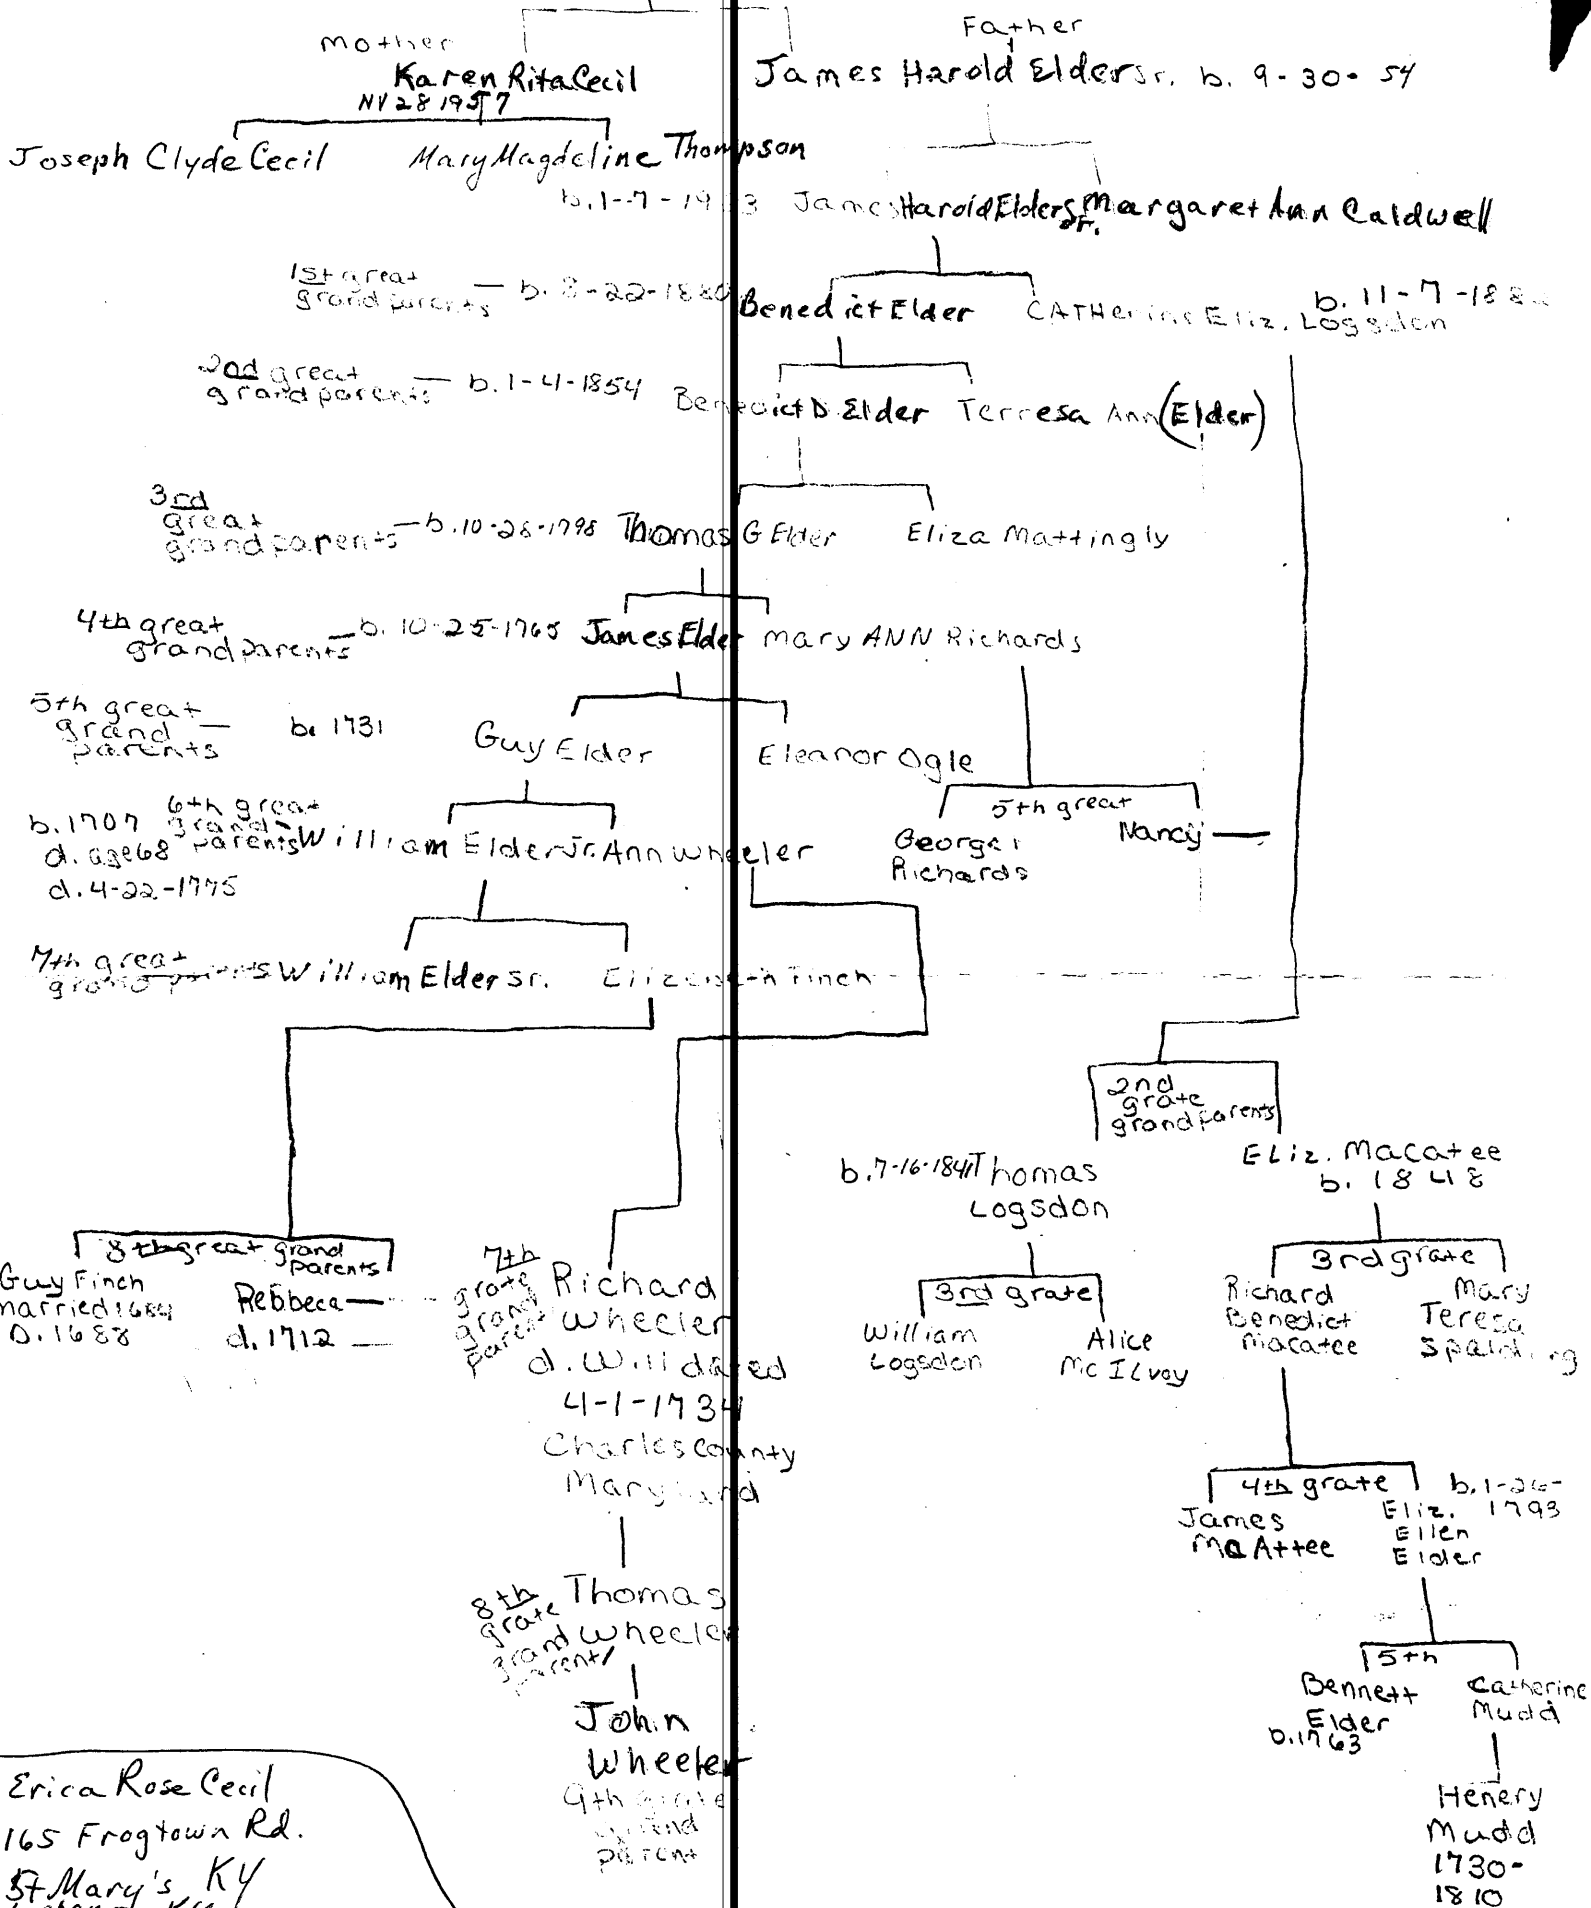 Mother
Father
Karen Rita Cecil
James Harold Elder Sr. b. 9-30-54
NV 28 1957
Joseph Clyde Cecil Mary Magdeline Thompson
b. 1-7-19 3 James Harold Elder Margaret Ann Caldwell
1st great
grand parents — b. 8-22-1880 Benedict Elder CATHerine Eliz. Logsdon
b. 11-7-188
2nd great
grandparents — b. 1-4-1854 Benedict D. Elder Terresa Ann (Elder)
3rd
great
grandparents — b. 10-28-1798 Thomas G Elder Eliza Mattingly
4th great
grandparents — b. 10-25-1765 James Elder Mary ANN Richards
5th great
grand —
parents
b. 1731
Guy Elder Eleanor Ogle
5th great
George
Richards
Nancy —
b. 1707
d. age 68
d. 4-22-1775
6th great
grand-
parents William Elder Jr. Ann Wheeler
7th great
grand parents William Elder Sr. Elizabeth Finch
2nd
grate
grandparents
b. 7-16-1841 Thomas
Logsdon
ELiz. Macatee
b. 1848
8th great grand
parents
Guy Finch
married 1684
D. 1688
Rebbeca —
d. 1712 —
7th
grate
grand
parent
Richard
Wheeler
d. Will dated
4-1-1734
Charles County
Maryland
3rd grate
William
Logsdon
Alice
McILvoy
3rd grate
Richard
Benedict
Macatee
Mary
Teresa
Spalding
4th grate
James
MaAttee
b. 1-26-
1793
Eliz.
Ellen
Elder
8th
grate
grand
parent
Thomas
Wheeler
5th
Bennett
Elder
b. 1763
Catherine
Mudd
John
Wheeler
9th grate
grand
parent
Henery
Mudd
1730-
1810
Erica Rose Cecil
165 Frogtown Rd.
St Mary's KY